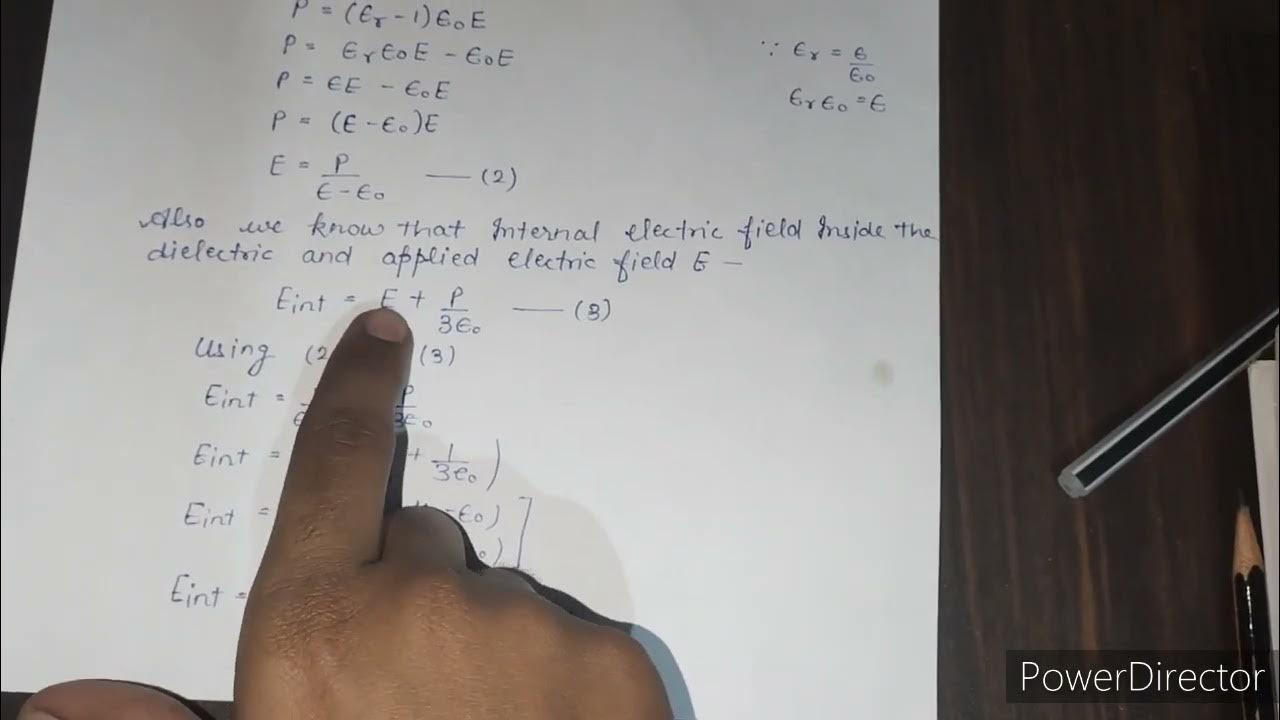 P = (ϵr - 1)ϵ0E
P = ϵrϵ0E - ϵ0E
P = ϵE - ϵ0E
P = (ϵ - ϵ0)E
∵ ϵr = ϵ/ϵ0
ϵrϵ0 = ϵ
E = P/(ϵ - ϵ0) — (2)
Also we know that Internal electric field Inside the
dielectric and applied electric field E –
Eint = E + P/3ϵ0 — (3)
Using (2 (3)
Eint = P/3ϵ0
Eint = + 1/3ϵ0)
Eint = -ϵ0)]
Eint =
PowerDirector